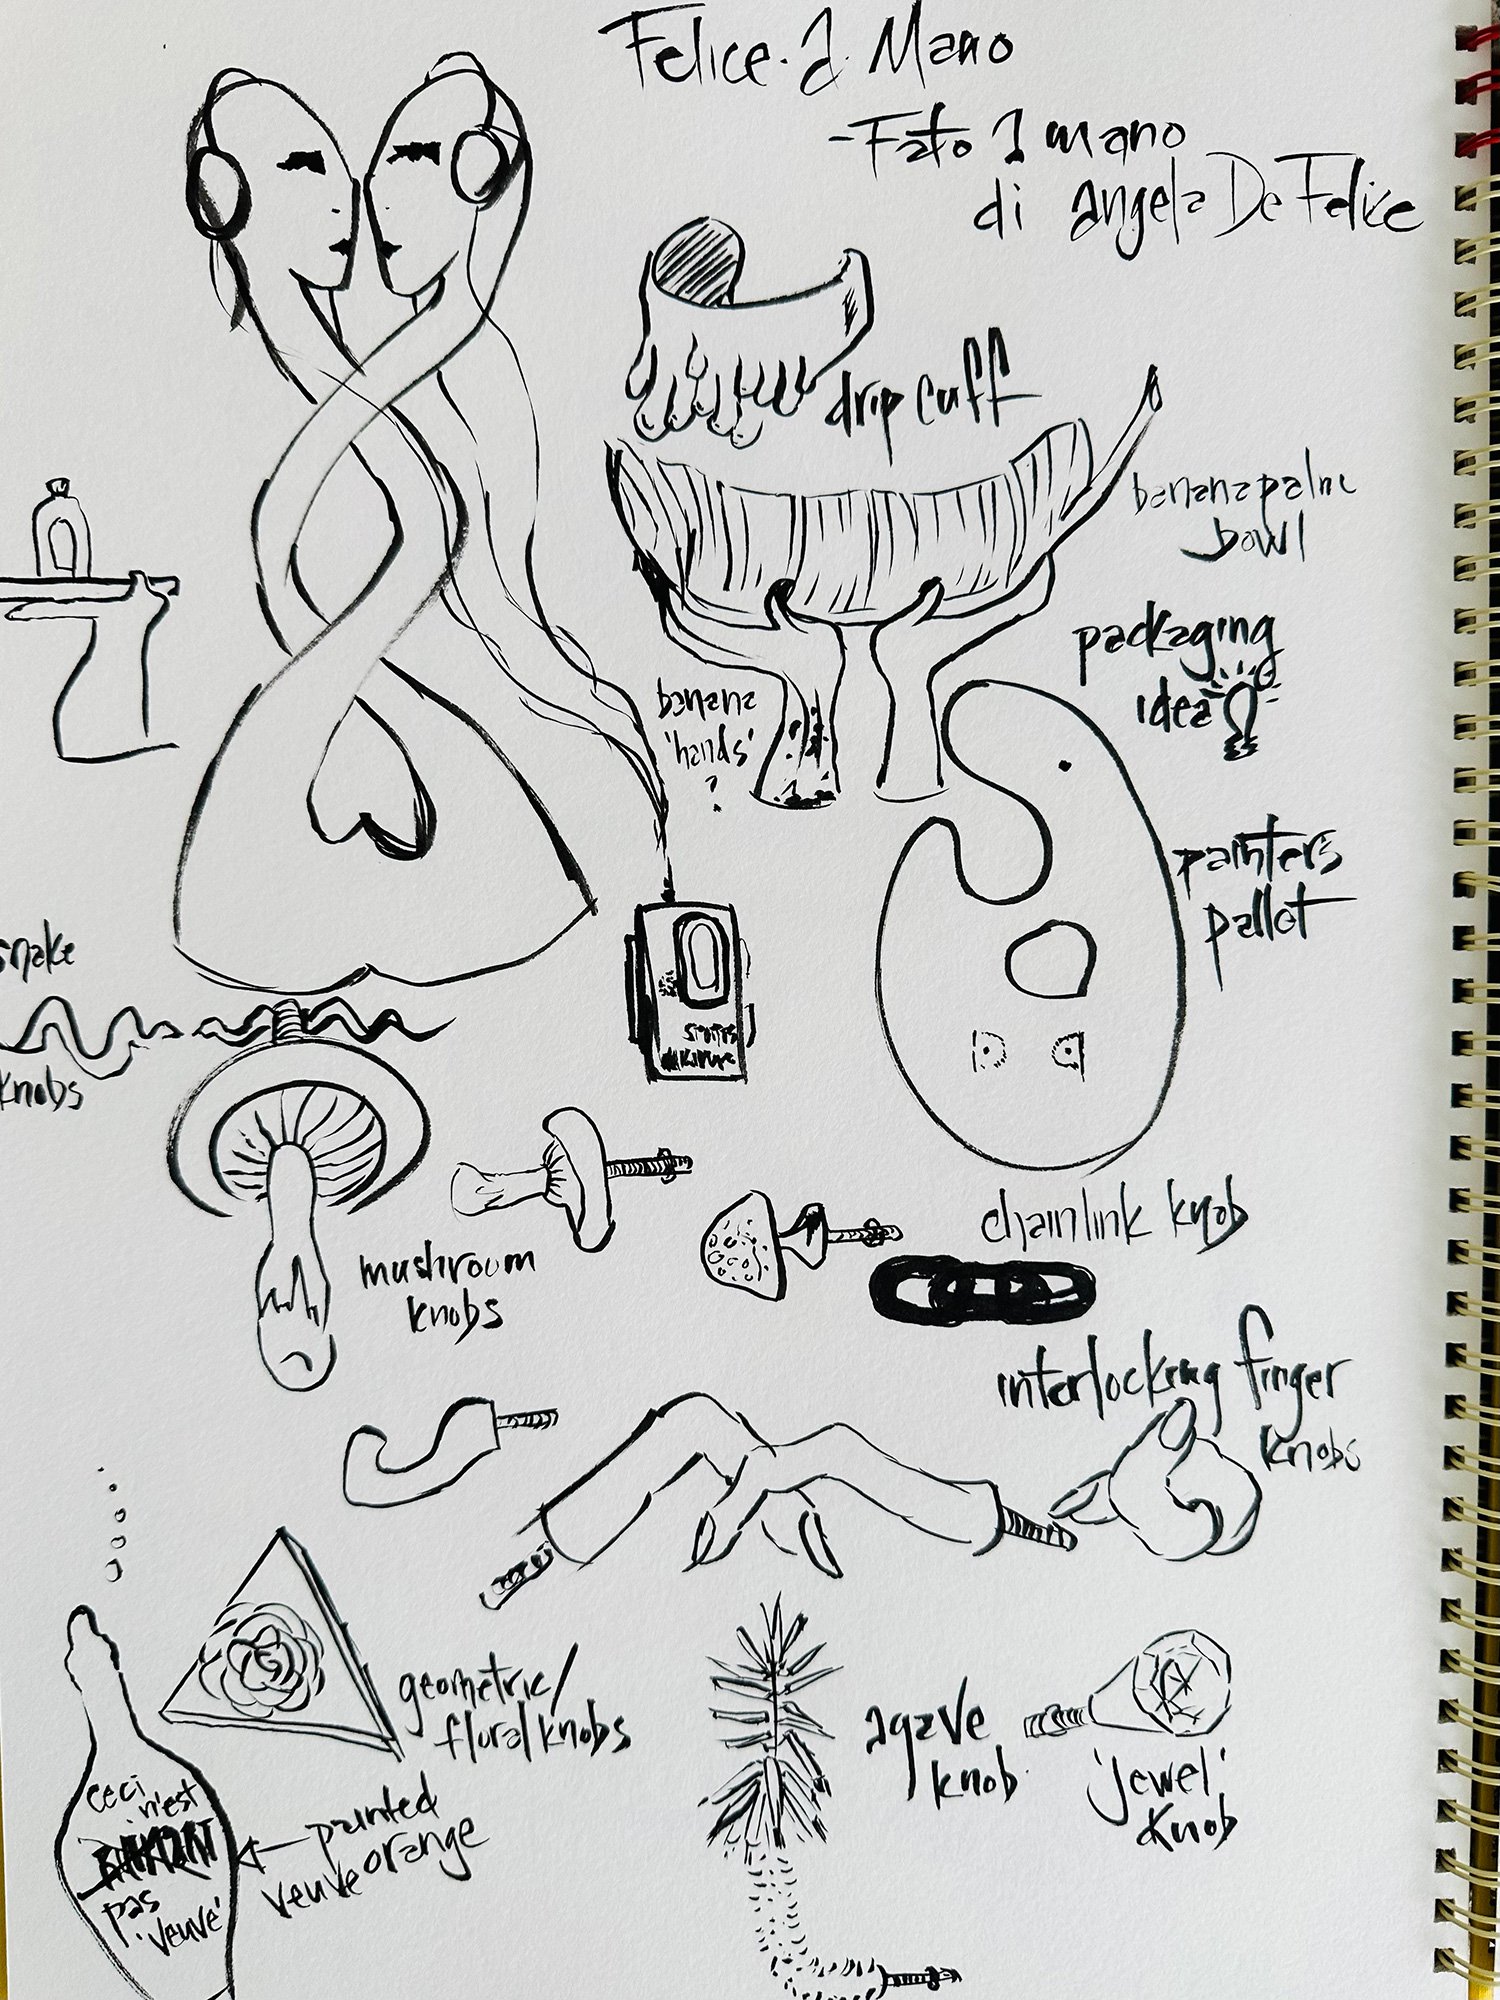 Felice. a. Mano
-Fato a mano
di angela De Felice
drip cuff
banana palm
bowl
packaging
idea
banana
'hands'
?
painter's
pallot
snake
knobs
mushroom
knobs
chainlink knob
interlocking finger
knobs
geometric/
floral knobs
agave
knob
'jewel'
knob
ceci
n'est
pas
'veuve'
painted
veuve orange